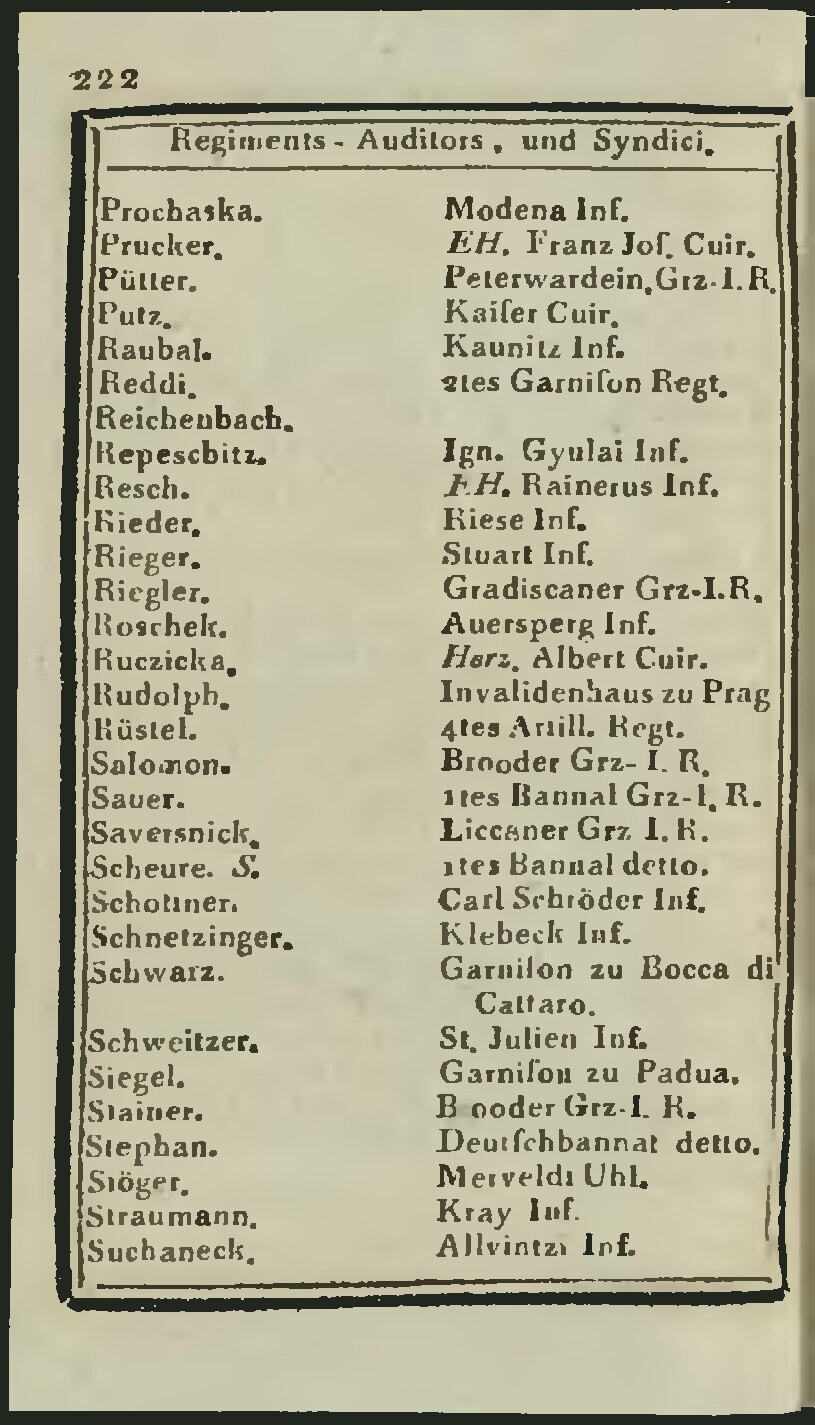 222
Regiments - Auditors, und Syndici.
Prochaska. Modena Inf.
Prucker. EH. Franz Jos. Cuir.
Pütter. Peterwardein. Grz-I. R.
Putz. Kaiſer Cuir.
Raubal. Kaunitz Inf.
Reddi. 2tes Garniſon Regt.
Reichenbach.
Repeschitz. Ign. Gyulai Inf.
Resch. EH. Rainerus Inf.
Rieder. Riese Inf.
Rieger. Stuart Inf.
Riegler. Gradiscaner Grz-I. R.
Roschek. Auersperg Inf.
Ruczicka. Herz. Albert Cuir.
Rudolph. Invalidenhaus zu Prag
Rüstel. 4tes Artill. Regt.
Salomon. Brooder Grz- I. R.
Sauer. 1tes Bannal Grz-I. R.
Saversnick. Liccaner Grz I. R.
Scheure. S. 1tes Bannal detto.
Schottner. Carl Schröder Inf.
Schnetzinger. Klebeck Inf.
Schwarz. Garniſon zu Bocca di
Cattaro.
Schweitzer. St. Julien Inf.
Siegel. Garniſon zu Padua.
Stainer. Brooder Grz-I. R.
Stephan. Deutſchbannat detto.
Stöger. Merveldt Uhl.
Straumann. Kray Inf.
Suchaneck. Allvintzi Inf.